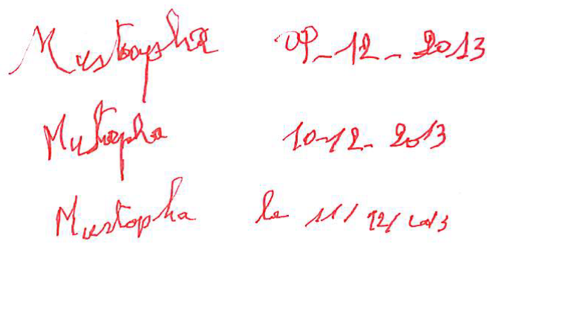 Mustapha 09-12-2013
Mustapha 10-12-2013
Mustapha le 11/12/2013